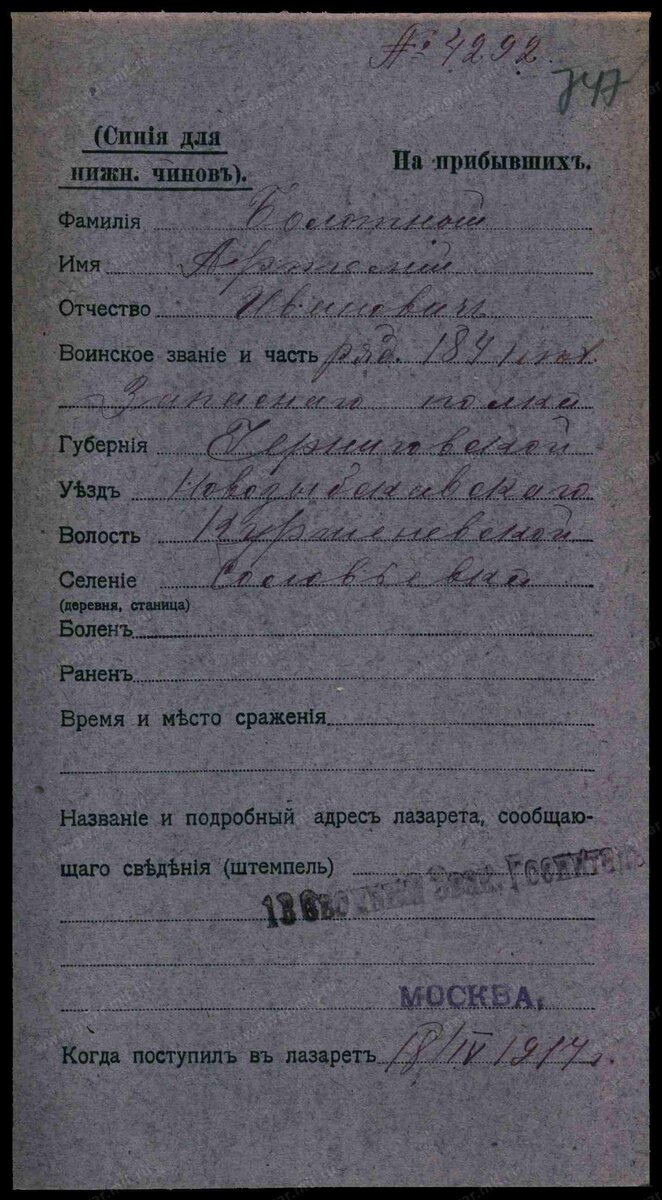 № 4292
747
(Синія для
нижн. чиновъ).
На прибывшихъ.
Фамилія Болотной
Имя
Отчество Ивановичъ
Воинское званіе и часть ряд. 184 пѣх.
Запаснаго полка
Губернія Черниговской
Уѣздъ Новозыбковскаго
Волость
Селеніе Соловьевка
(деревня, станица)
Боленъ
Раненъ
Время и мѣсто сраженія
Названіе и подробный адресъ лазарета, сообщаю-
щаго свѣдѣнія (штемпель)
Госпиталь
МОСКВА,
Когда поступилъ въ лазаретъ 18/IV 1917 г.